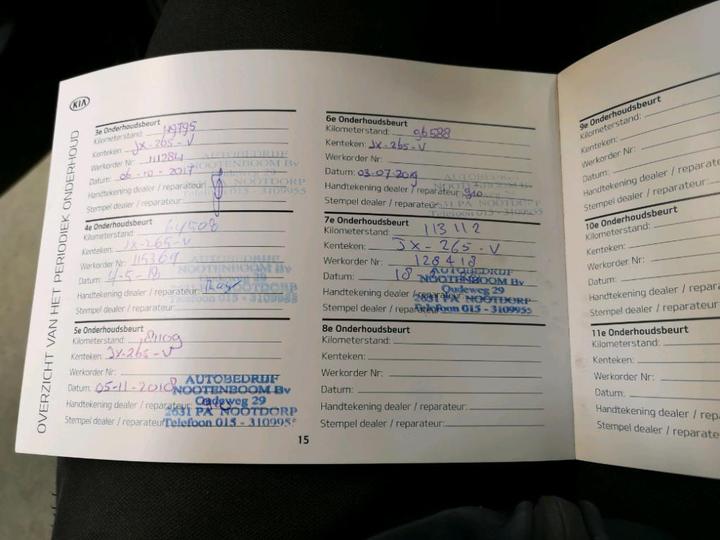 KIA
OVERZICHT VAN HET PERIODIEK ONDERHOUD
3e Onderhoudsbeurt
Kilometerstand: 49795
Kenteken: JX-265-V
Werkorder Nr: 111284
Datum: 06-10-2017
Handtekening dealer / reparateur:
Stempel dealer / reparateur:
AUTOBEDRIJF
NOOTENBOOM BV
NOOTDORP
015 - 3109955
4e Onderhoudsbeurt
Kilometerstand: 64508
Kenteken: JX-265-V
Werkorder Nr: 115364
Datum: 4-5-18
Handtekening dealer / reparateur:
Stempel dealer / reparateur:
AUTOBEDRIJF
NOOTENBOOM Bv
NOOTDORP
Telefoon 015 - 3109955
5e Onderhoudsbeurt
Kilometerstand:
Kenteken: JX-265-V
Werkorder Nr:
Datum: 05-11-2018
Handtekening dealer / reparateur:
Stempel dealer / reparateur:
AUTOBEDRIJF
NOOTENBOOM Bv
Oudeweg 29
2631 PA NOOTDORP
Telefoon 015 - 3109955
15
6e Onderhoudsbeurt
Kilometerstand: 96588
Kenteken: JX-265-V
Werkorder Nr:
Datum: 03-07-2019
Handtekening dealer / reparateur:
Stempel dealer / reparateur:
AUTOBEDRIJF
NOOTENBOOM Bv
2631 PA NOOTDORP
Telefoon 015 - 3109955
7e Onderhoudsbeurt
Kilometerstand: 113112
Kenteken: JX-265-V
Werkorder Nr: 128418
Datum: 18
Handtekening dealer / reparateur:
Stempel dealer / reparateur:
AUTOBEDRIJF
NOOTENBOOM Bv
Oudeweg 29
2631 PA NOOTDORP
Telefoon 015 - 3109955
8e Onderhoudsbeurt
Kilometerstand:
Kenteken:
Werkorder Nr:
Datum:
Handtekening dealer / reparateur:
Stempel dealer / reparateur:
9e Onderhoudsbeurt
Kilometerstand:
Kenteken:
Werkorder Nr:
Datum:
Handtekening dealer / reparate
Stempel dealer / reparateur:
10e Onderhoudsbeurt
Kilometerstand:
Kenteken:
Werkorder Nr:
Datum:
Handtekening dealer / repara
Stempel dealer / reparateur
11e Onderhoudsbeurt
Kilometerstand:
Kenteken:
Werkorder Nr:
Datum:
Handtekening dealer / repa
Stempel dealer / reparate